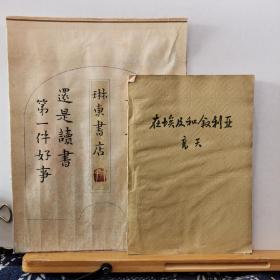 琳東書店
還是讀書
第一件好事
在埃及和叙利亚
亮天